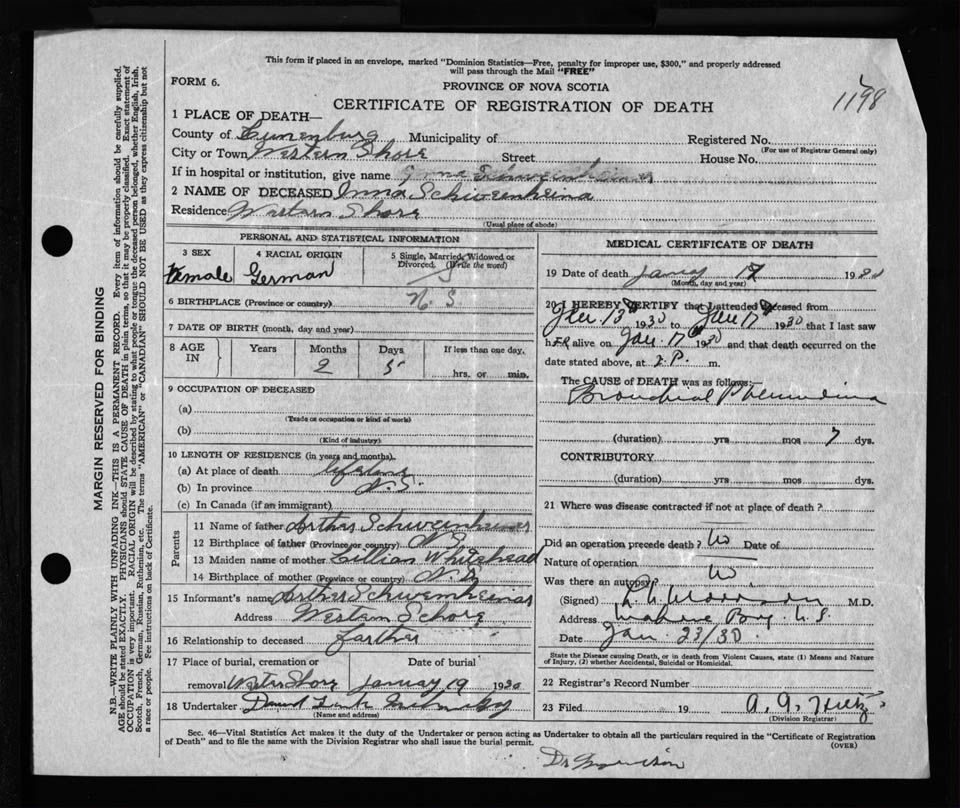 This form if placed in an envelope, marked "Dominion Statistics—Free, penalty for improper use, $300," and properly addressed
will pass through the Mail "FREE"
FORM 6.
PROVINCE OF NOVA SCOTIA
1198
CERTIFICATE OF REGISTRATION OF DEATH
1 PLACE OF DEATH—
County of Lunenburg Municipality of
Registered No.
(For use of Registrar General only)
City or Town Western Shore Street House No.
If in hospital or institution, give name
2 NAME OF DECEASED
Residence Western Shore
(Usual place of abode)
PERSONAL AND STATISTICAL INFORMATION
3 SEX 4 RACIAL ORIGIN 5 Single, Married, Widowed or Divorced. (Write the word)
Female German S
6 BIRTHPLACE (Province or country) N. S.
7 DATE OF BIRTH (month, day and year)
8 AGE IN Years Months Days If less than one day,
2 5 hrs. or min.
9 OCCUPATION OF DECEASED
(a)
(Trade or occupation or kind of work)
(b)
(Kind of industry)
10 LENGTH OF RESIDENCE (in years and months).
(a) At place of death
(b) In province N.S.
(c) In Canada (if an immigrant)
Parents
11 Name of father
12 Birthplace of father (Province or country) N.S.
13 Maiden name of mother Lillian Whitehead
14 Birthplace of mother (Province or country) N.S.
15 Informant's name
Address Western Schore
16 Relationship to deceased farther
17 Place of burial, cremation or Date of burial
removal Western Shore January 19 1930
18 Undertaker
(Name and address)
MEDICAL CERTIFICATE OF DEATH
19 Date of death 17 1930
(Month, day and year)
20 I HEREBY CERTIFY that I attended deceased from
Jan 13 1930 to Jan 17 1930 that I last saw
her alive on Jan. 17 1930 and that death occurred on the
date stated above, at P. m.
The CAUSE of DEATH was as follows:—
Bronchial
(duration) yrs mos 7 dys.
CONTRIBUTORY
(duration) yrs mos dys.
21 Where was disease contracted if not at place of death?
Did an operation precede death? No Date of
Nature of operation
Was there an autopsy? No
(Signed) M.D.
Address Mahone Bay N.S.
Date Jan. 23/30.
State the Disease causing Death, or in death from Violent Causes, state (1) Means and Nature
of Injury, (2) whether Accidental, Suicidal or Homicidal.
22 Registrar's Record Number
23 Filed 19
(Division Registrar)
Sec. 46—Vital Statistics Act makes it the duty of the Undertaker or person acting as Undertaker to obtain all the particulars required in the "Certificate of Registration
of Death" and to file the same with the Division Registrar who shall issue the burial permit.
(OVER)
Dr Morrison
MARGIN RESERVED FOR BINDING
N.B.—WRITE PLAINLY WITH UNFADING INK—THIS IS A PERMANENT RECORD. Every item of information should be carefully supplied.
AGE should be stated EXACTLY. PHYSICIANS should STATE CAUSE OF DEATH in plain terms, so that it may be properly classified. Exact statement of
OCCUPATION is very important. RACIAL ORIGIN will be described by stating to what people or tongue the deceased person belonged, whether English, Irish,
Scotch, French, German, Russian, Ruthenian, etc. The terms "AMERICAN" or "CANADIAN" SHOULD NOT BE USED as they express citizenship but not
a race or people. See instructions on back of Certificate.